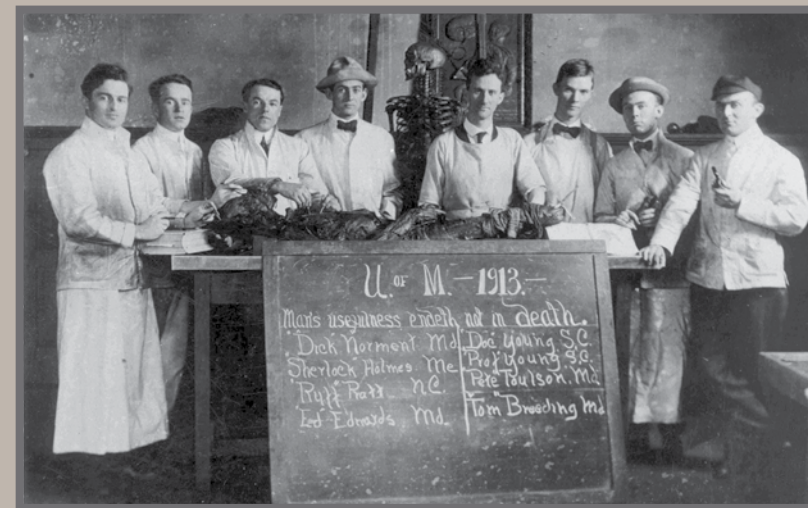 U. OF M. — 1913. —
Man's usefulness endeth not in death.
"Dick" Norment Md.
"Sherlock" Holmes. Me
"Ruff" Pratt N.C.
"Ed" Edwards, Md.
"Doc" Young S.C.
"Prof" Young S.C.
"Pete" Toulson. Md.
"Tom" Breeding Md